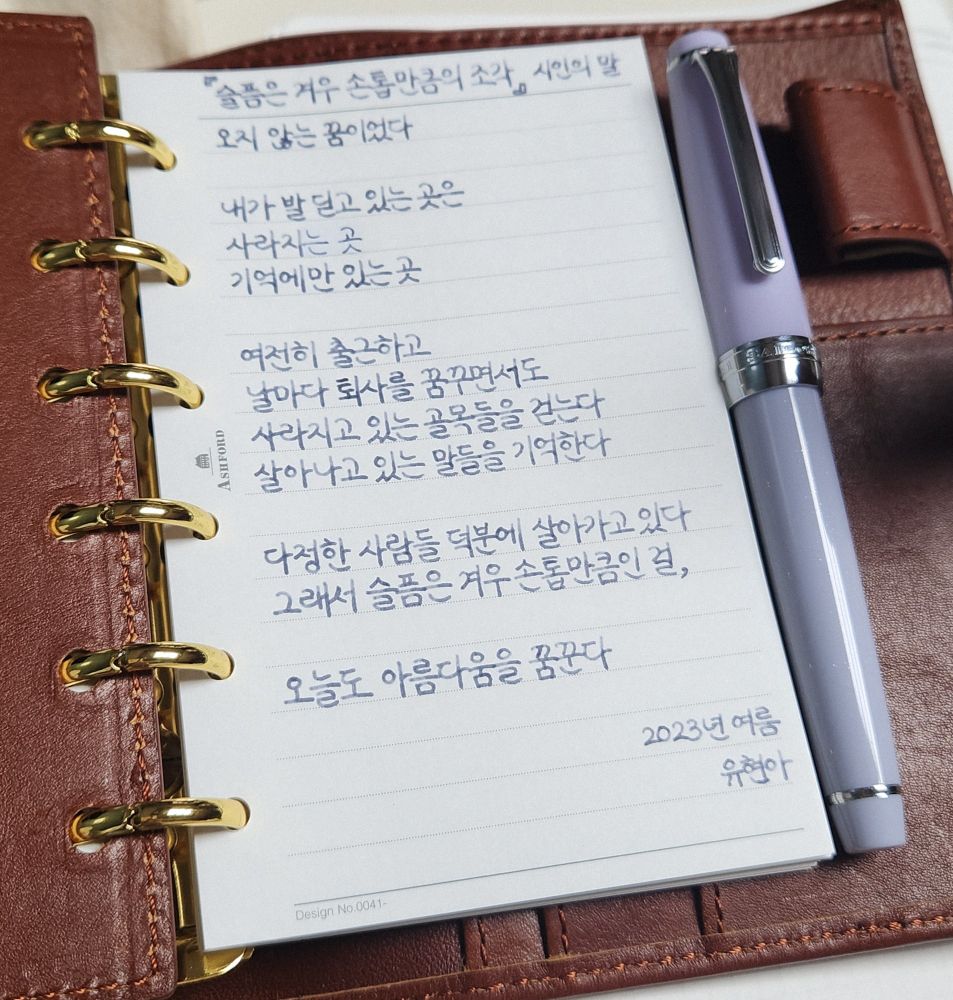 『슬픔은 겨우 손톱만큼의 조각』 시인의 말
오지 않는 꿈이었다
내가 발 딛고 있는 곳은
사라지는 곳
기억에만 있는 곳
여전히 출근하고
날마다 퇴사를 꿈꾸면서도
사라지고 있는 골목들을 걷는다
살아나고 있는 말들을 기억한다
다정한 사람들 덕분에 살아가고 있다
그래서 슬픔은 겨우 손톱만큼인 걸,
오늘도 아름다움을 꿈꾼다
2023년 여름
유현아
ASHFORD
Design No.0041-